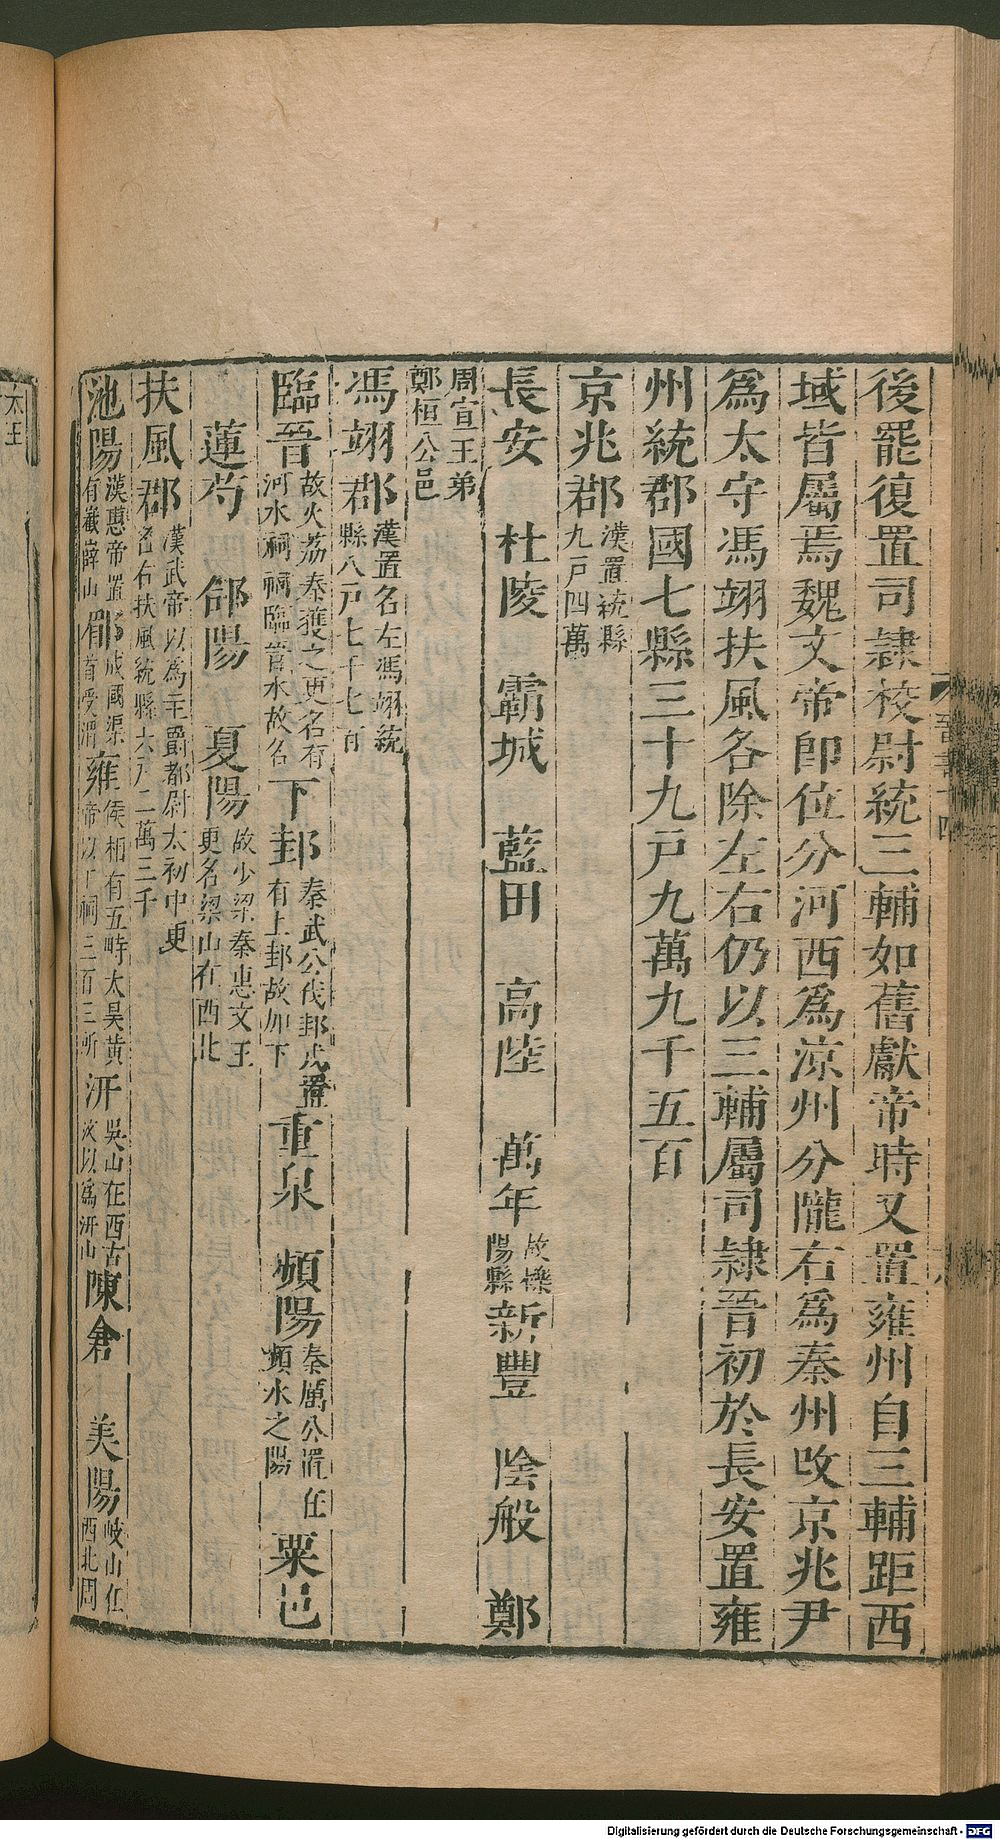 後罷復置司隷校尉統三輔如舊獻帝時又置雍州自三輔距西
域皆屬焉魏文帝即位分河西爲涼州分隴右爲秦州改京兆尹
爲太守馮翊扶風各除左右仍以三輔屬司隷晉初於長安置雍
州統郡國七縣三十九戸九萬九千五百
京兆郡漢置統縣九戸四萬
長安 杜陵 霸城 藍田 高陸 萬年故櫟陽縣新豐 陰般 鄭
周宣王弟鄭桓公邑
馮翊郡漢置名左馮翊統縣八戸七千七百
臨晉故大荔秦獲之更名有河水祠祠臨晉水故名下邽秦武公伐邽戎置有上邽故加下重泉 頻陽秦厲公置在頻水之陽粟邑
蓮芍 郃陽 夏陽故少梁秦惠文王更名梁山在西北
扶風郡漢武帝以爲主爵都尉太初中更名右扶風統縣六戸二萬三千
池陽漢惠帝置有嶻嶭山郿成國渠首受渭雍侯相有五畤太昊黃帝以下祠三百三所汧吳山在西古汶以爲汧山陳倉 美陽岐山在西北周
晉書十四
太王
Digitalisierung gefördert durch die Deutsche Forschungsgemeinschaft - DFG